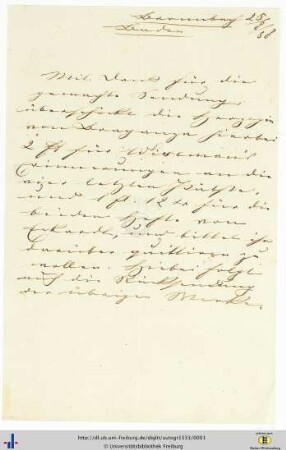 Bronnbach 25/6/58
Baden
Mit Dank für die
gemachte Sendung
überschickt die Herzogin
von Braganza hierbei
2 ft für
Erinnerungen an die
letzten
und 1 fl. 12 x für die
beiden Hefte von
und bittet ihn
darüber quittiren zu
wollen. Hiebei folgt
auch die Rücksendung
der übrigen Werke.
http://dl.ub.uni-freiburg.de/diglit/autogr1533/0001
© Universitätsbibliothek Freiburg